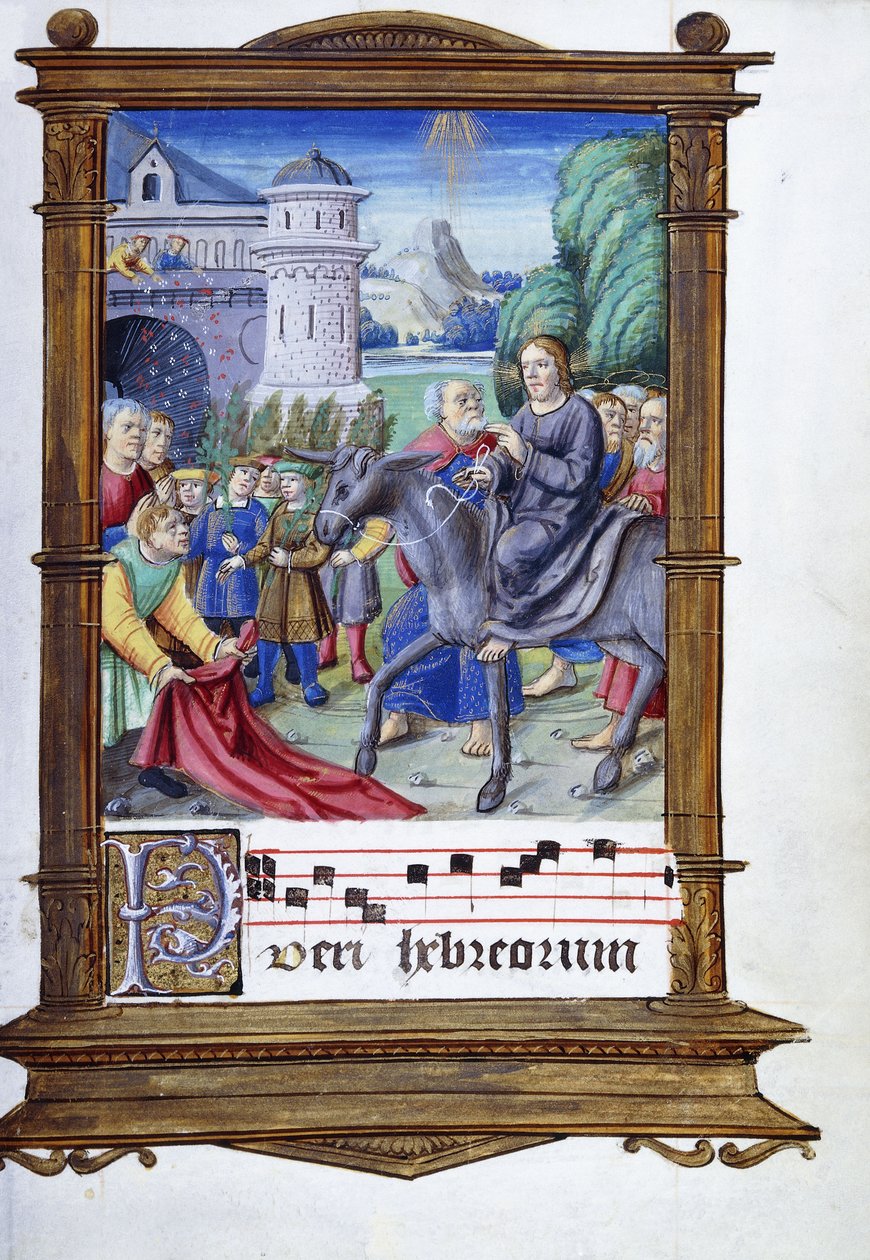 Pueri hebreorum